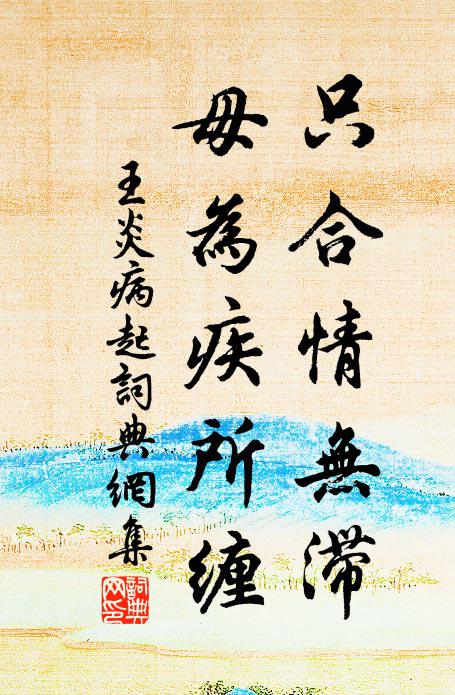 只合情無滯
毋為疾所纏
王炎病起詞典網集
詞典